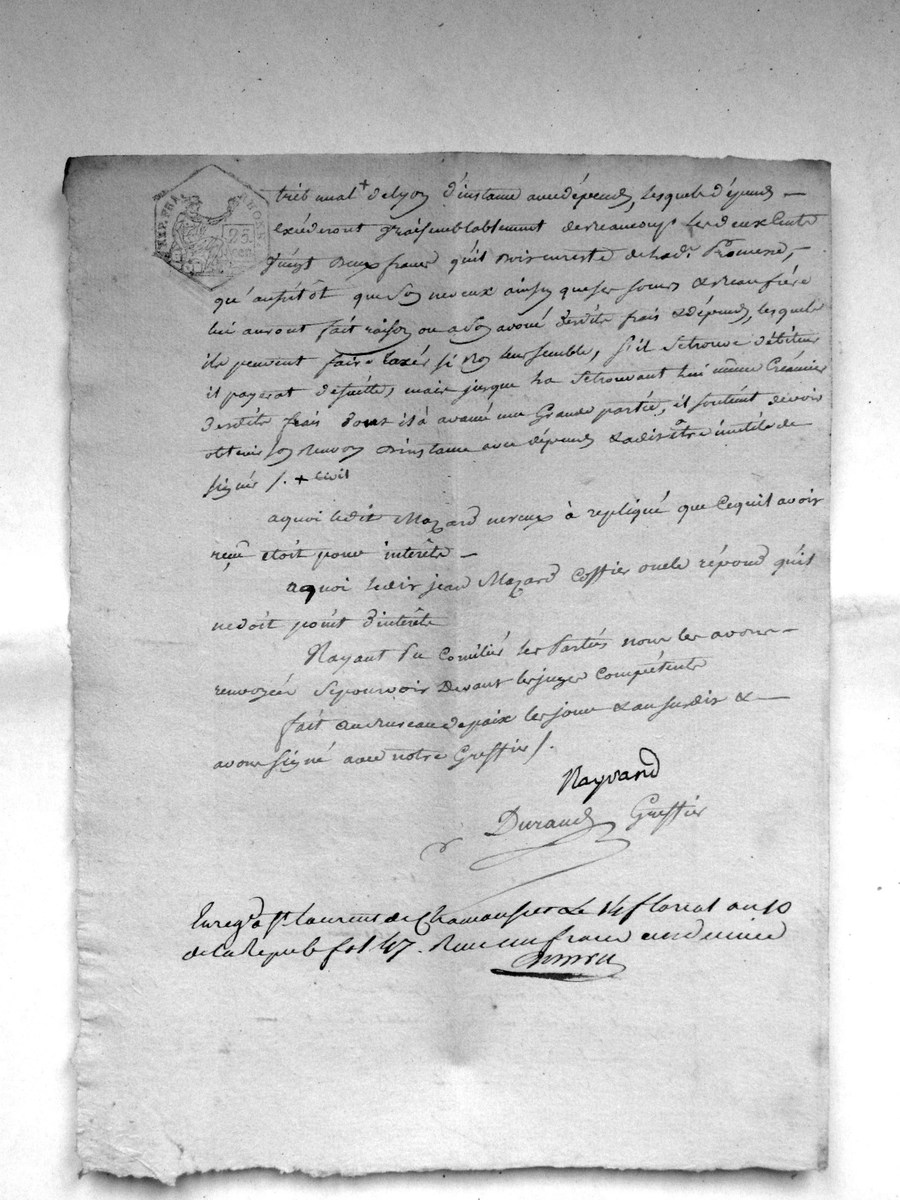 tribunal + de lyon d'instance avec dépend, lesquels dépend –
exéderont vraisemblablement de beaucoup les deux Cents
vingt deux francs qu'il doit en reste de lad.e Promesse,
qu'aussitôt que son neveux ainsy que ses sœurs & Beaufrére
lui auront fait raison ou a son avoué desdits frais & dépend, lesquels
ils peuvent faire taxér si bon leur semble, s'il se trouve débiteur
il payerat de suitte, mais jusque la se trouvant lui même Créancier
desdits frais dont il à avancé une Grande partié, il soutient devoir
obtenir son Renvoy d'instance avec dépend & a dit être inutile de
signér /. + Civil
aquoi ledit Mazard neveux à repliqué que Cequil avoit
reçu etoit pour intérêts –
aquoi ledit jean Mazard Coffier oncle répond qu'il
nedoit point d'intérêts
Nayant Pu Conciliér les Partiés nous les avons –
renvoyées Sepourvoir Devant les juges Compétents
fait au Bureau de paix les jour & an susdit & –
avons signé avec notre Greffier /.
Nayrand
Durand Greffier
Enreg.é a St laurent de Chamousset Le 14 floreal an 10
de la Repub. fol 47. Recu un franc
EXP. FRA.
25.